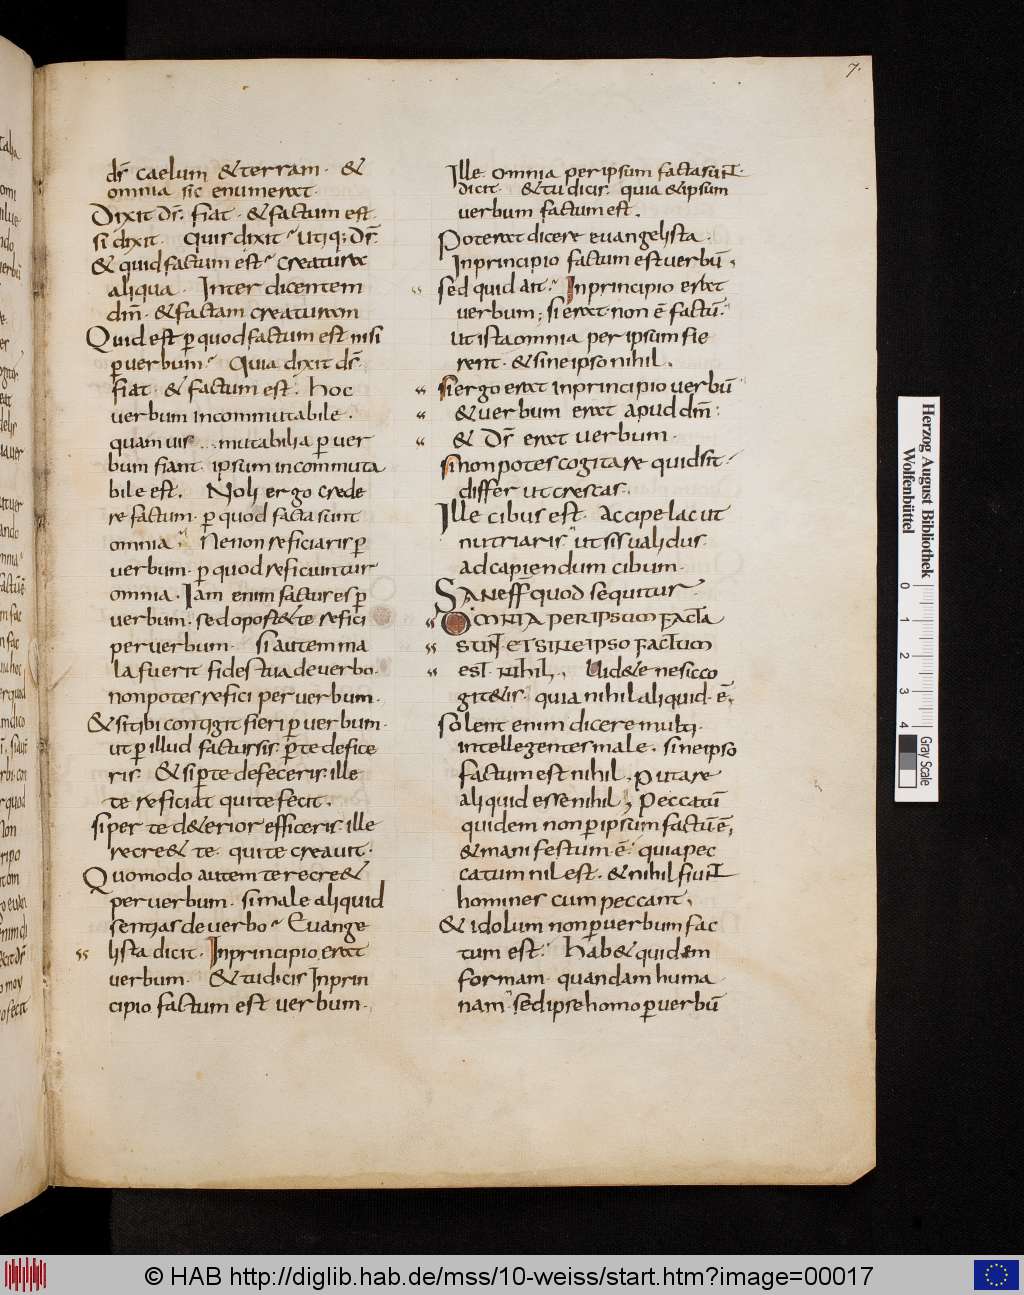 7.
dr̄ caelum & terram · &
omnia sic enumerat ·
Dixit dr̄ · fiat · & factum est ·
si dixit · Quis dixit · utiq; dr̄ ·
& quid factum est · creaturae
aliqua · Inter dicentem
dm̄ · & factam creaturam
Quid est ꝑ quod factum est nisi
ꝑ uerbum · Quia dixit dr̄ ·
fiat · & factum est · hoc
uerbum incommutabile ·
quamuis mutabilia ꝑ uer
bum fiant · ipsum incommuta
bile est · Noli ergo crede
re factum · ꝑ quod facta sunt
omnia · Ne non reficiaris ꝑ
uerbum · ꝑ quod reficiuntur
omnia · Iam enim factus es ꝑ
uerbum · sed oport& te refici
per uerbum · si autem ma
la fuerit fides tua de uerbo ·
non potes refici per uerbum ·
& si tibi contigit fieri ꝑ uerbum ·
ut ꝑ illud factus sis · ꝑ te defice
ris · & si ꝑ te defeceris · ille
te reficiat qui te fecit ·
si per te d&erior efficeris · ille
recre& te · qui te creauit ·
Quomodo autem te recre&
per uerbum · si male aliquid
sentias de uerbo · Euange
lista dicit · In principio erat
uerbum · & tu dicis In prin
cipio factum est uerbum ·
Ille omnia per ipsum facta sunt ·
dicit · & tu dicis · quia & ipsum
uerbum factum est ·
Poterat dicere euangelista ·
In principio factum est uerbū ·
sed quid ait · In principio erat
uerbum ; si erat · non ē factū ·
ut ista omnia per ipsum fie
rent · & sine ipso nihil ·
si ergo erat in principio uerbū
& uerbum erat apud dm̄ :
& dr̄ erat uerbum ·
si non potes cogitare quid sit ·
differ ut crescas ·
Ille cibus est · accipe lac ut
nutriaris · ut sis ualidus
ad capiendum cibum ·
SANE quod sequitur ·
OMNIA PER IPSUM FACTA
SUNT ET SINE IPSO FACTUM
EST NIHIL · Uid&e ne sic co
git&is · quia nihil aliquid · ē ·
solent enim dicere multi ·
intellegentes male · sine ipso
factum est nihil · putare
aliquid esse nihil ; Peccatū
quidem non ꝑ ipsum factū ē ,
& manifestum · ē · quia pec
catum nil est · & nihil fiunt
homines cum peccant ·
& idolum non ꝑ uerbum fac
tum est · hab& quidem
formam · quandam huma
nam · sed ipse homo ꝑ uerbū
Herzog August Bibliothek
Wolfenbüttel
0
1
2
3
4
Gray Scale
© HAB http://diglib.hab.de/mss/10-weiss/start.htm?image=00017